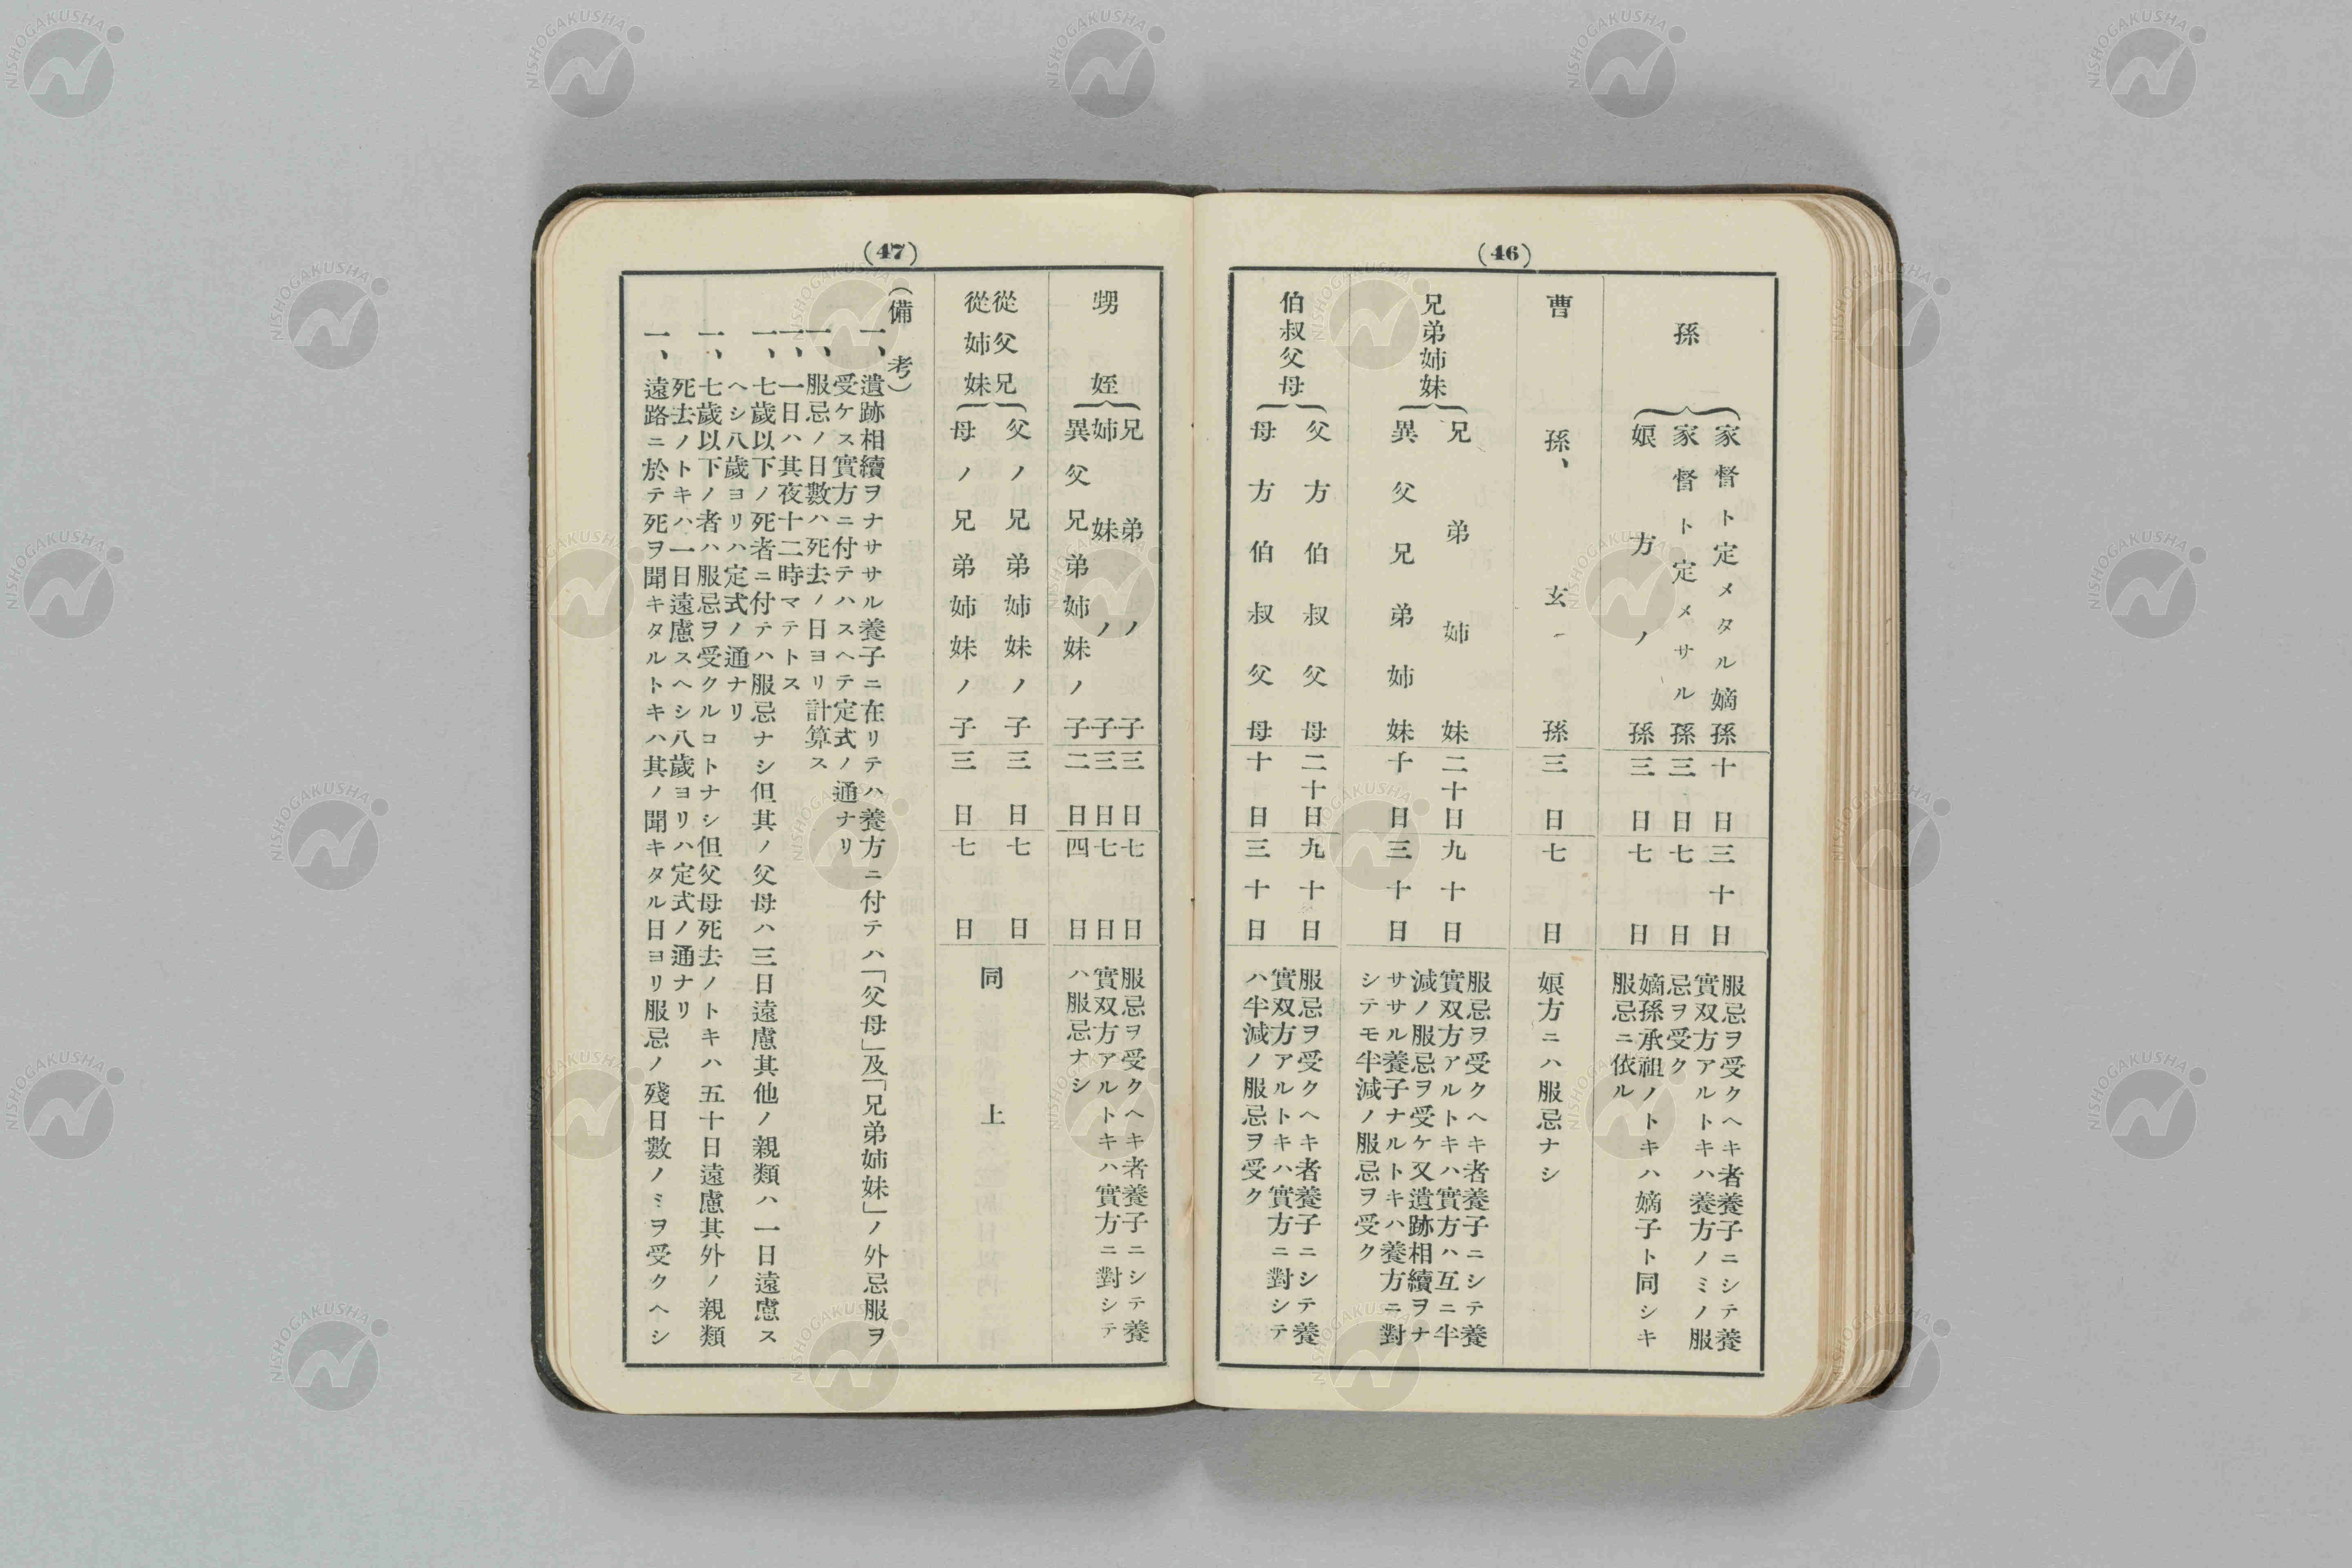 (46)
孫
家督ト定メタル嫡孫 十日 三十日
家督ト定メサル孫 三日 七日
娘方ノ孫 三日 七日
服忌ヲ受クヘキ者養子ニシテ養
實双方アルトキハ養方ノミノ服
忌ヲ受ク
嫡孫承祖ノトキハ嫡子ト同シキ
服忌ニ依ル
曹孫、玄孫 三日 七日
娘方ニハ服忌ナシ
兄弟姉妹
兄弟姉妹 二十日 九十日
異父兄弟姉妹 十日 三十日
服忌ヲ受クヘキ者養子ニシテ養
實双方アルトキハ實方ハ互ニ半
減ノ服忌ヲ受ケ又遺跡相續ヲナ
ササル養子ナルトキハ養方ニ對
シテモ半減ノ服忌ヲ受ク
伯叔父母
父方伯叔父母 二十日 九十日
母方伯叔父母 十日 三十日
服忌ヲ受クヘキ者養子ニシテ養
實双方アルトキハ實方ニ對シテ
ハ半減ノ服忌ヲ受ク
(47)
甥姪
兄弟ノ子 三日 七日
姉妹ノ子 三日 七日
異父兄弟姉妹ノ子 二日 四日
服忌ヲ受クヘキ者養子ニシテ養
實双方アルトキハ實方ニ對シテ
ハ服忌ナシ
從父兄
從姉妹
父ノ兄弟姉妹ノ子 三日 七日
母ノ兄弟姉妹ノ子 三日 七日
同上
(備考)
一、遺跡相續ヲナササル養子ニ在リテハ養方ニ付テハ「父母」及「兄弟姉妹」ノ外忌服ヲ
受ケス實方ニ付テハスヘテ定式ノ通ナリ
一、服忌ノ日數ハ死去ノ日ヨリ計算ス
一、一日ハ其夜十二時マテトス
一、七歲以下ノ死者ニ付テハ服忌ナシ但其ノ父母ハ三日遠慮其他ノ親類ハ一日遠慮ス
ヘシ八歲ヨリハ定式ノ通ナリ
一、七歲以下ノ者ハ服忌ヲ受クルコトナシ但父母死去ノトキハ五十日遠慮其外ノ親類
死去ノトキハ一日遠慮スヘシ八歲ヨリハ定式ノ通ナリ
一、遠路ニ於テ死ヲ聞キタルトキハ其ノ聞キタル日ヨリ服忌ノ殘日數ノミヲ受クヘシ
NISHOGAKUSHA